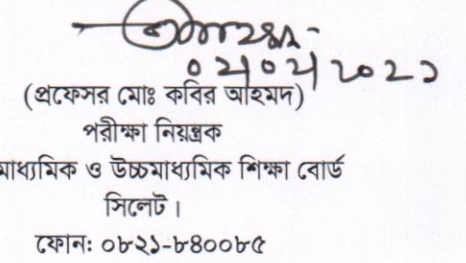 ০২/০২/২০২১
(প্রফেসর মোঃ কবির আহমদ)
পরীক্ষা নিয়ন্ত্রক
মাধ্যমিক ও উচ্চমাধ্যমিক শিক্ষা বোর্ড
সিলেট।
ফোনঃ ০৮২১-৮৪০০৮৫